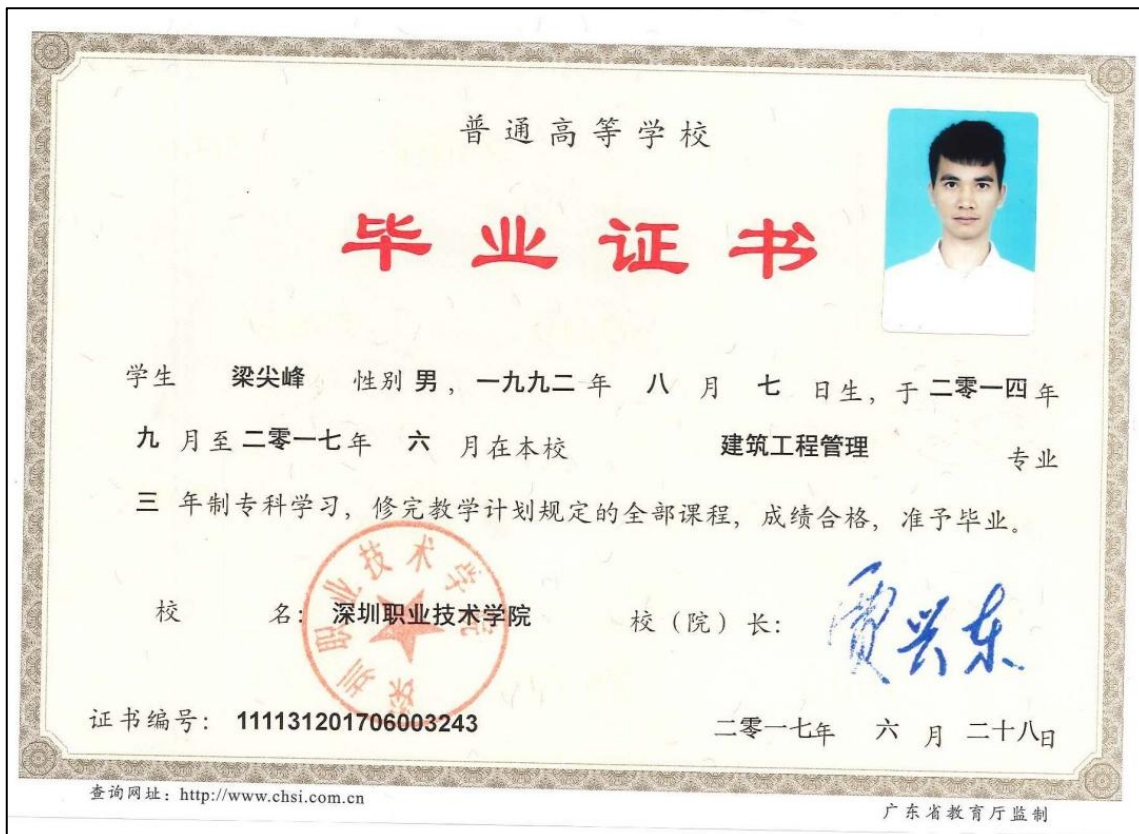 普通高等学校
毕业证书
学生 梁尖峰 性别 男，一九九二 年 八 月 七 日生，于 二零一四 年
九 月至 二零一七 年 六 月在本校 建筑工程管理 专业
三 年制专科学习，修完教学计划规定的全部课程，成绩合格，准予毕业。
深圳职业技术学院
校 名：深圳职业技术学院 校（院）长：贾兴东
证书编号：111131201706003243 二零一七年 六 月 二十八日
查询网址：http://www.chsi.com.cn 广东省教育厅监制